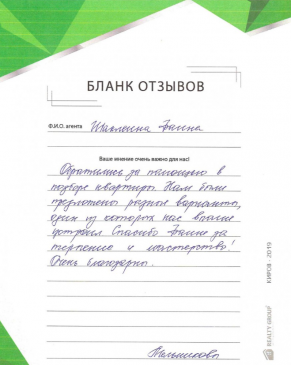 БЛАНК ОТЗЫВОВ
Ф.И.О. агента
Ваше мнение очень важно для нас!
Обратились за помощью в
подборе квартиры. Нам были
предложены разные варианты,
один из которых нас вполне
устроил. Спасибо за
терпение и мастерство!
Очень благодарны.
Мельниковы
КИРОВ - 2019
REALTY GROUP